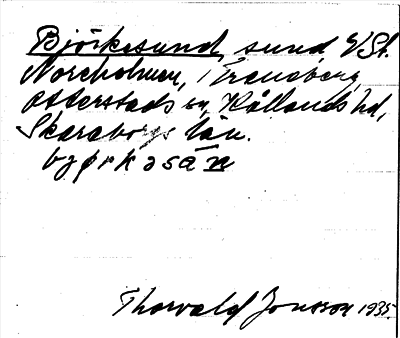 Björkesund, sund, V St.
Norcholmen, Traneberg,
Otterstads sn, Kållands hd,
Skaraborgs län.
bjørkəsán
Thorvald Jonsson 1935.